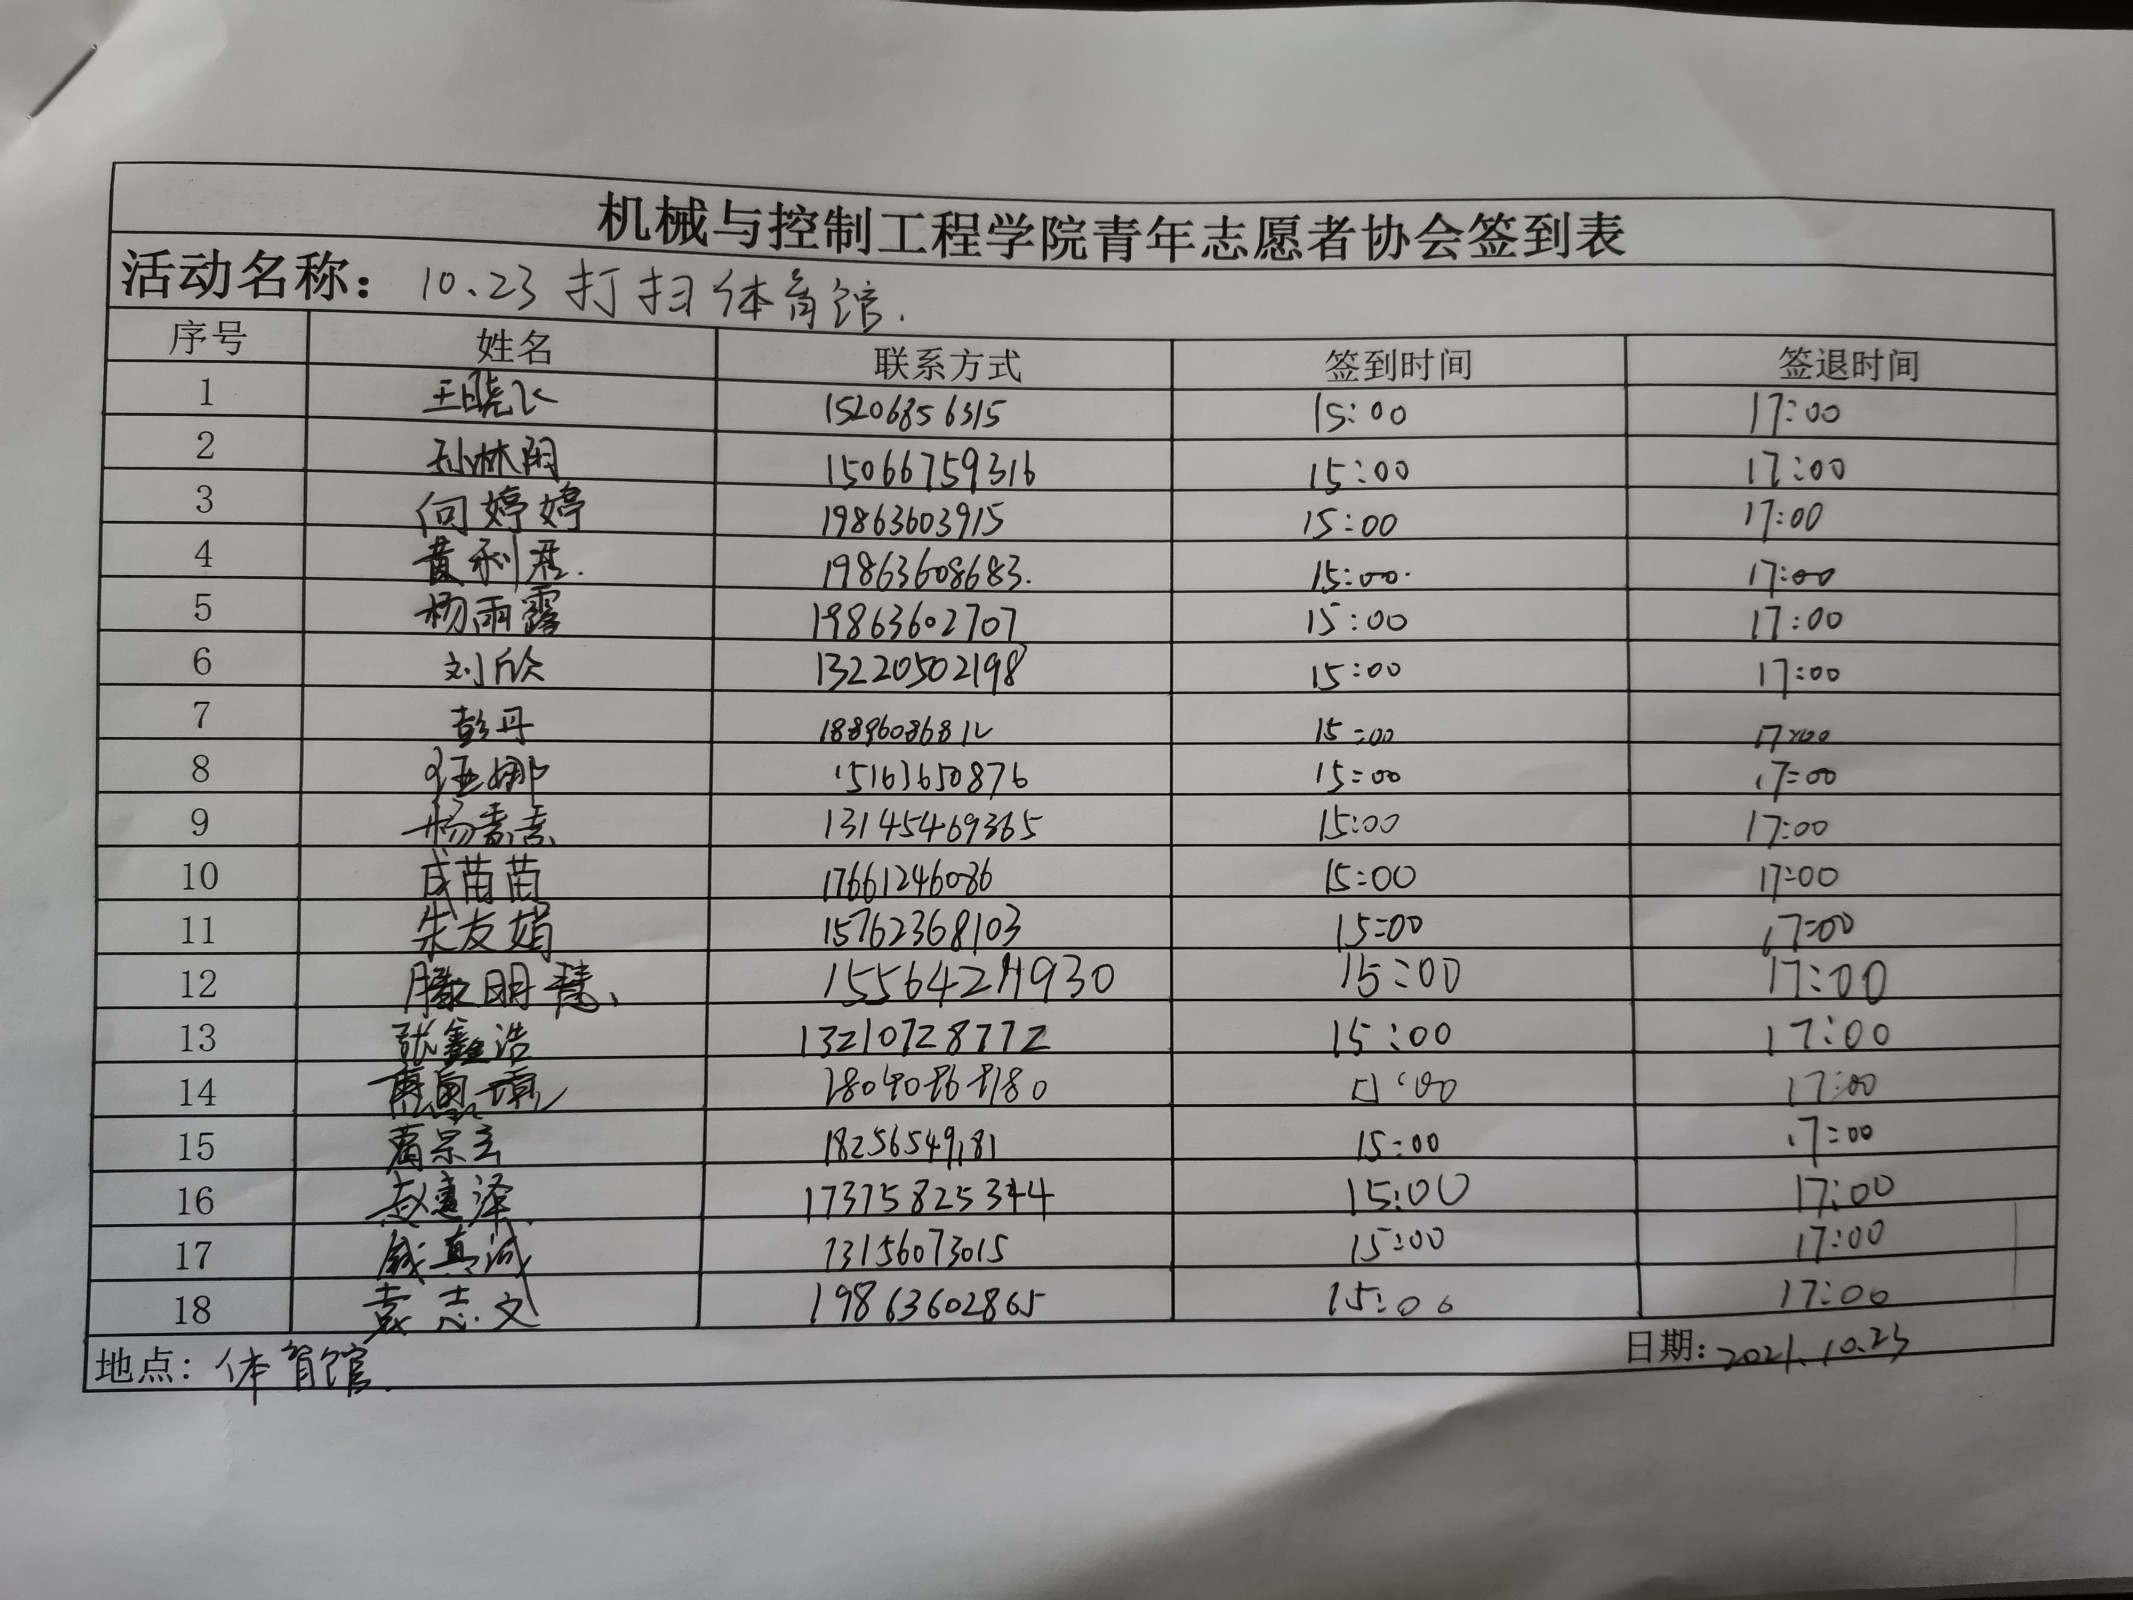 机械与控制工程学院青年志愿者协会签到表
活动名称：10.23打扫体育馆.
序号 姓名 联系方式 签到时间 签退时间
1 王晓飞 15206856315 15:00 17:00
2 孙林阳 15066759316 15:00 17:00
3 何婷婷 19863603915 15:00 17:00
4 黄利君. 19863608683. 15:00. 17:00
5 杨雨露 19863602707 15:00 17:00
6 刘欣 13220502198 15:00 17:00
7 彭丹 18896086812 15:00 17:00
8 15163650876 15:00 17:00
9 13145469365 15:00 17:00
10 成苗苗 17661246086 15:00 17:00
11 朱友娟 15762368103 15:00 17:00
12 滕明慧、 15:00 17:00
13 张鑫浩 13210728772 15:00 17:00
14 17:00
15 葛宗玄 18256549181 15:00 17:00
16 赵建泽 17375825344 15:00 17:00
17 13156073015 15:00 17:00
18 袁志文 19863602865 15:00 17:00
地点：体育馆. 日期：2021.10.23